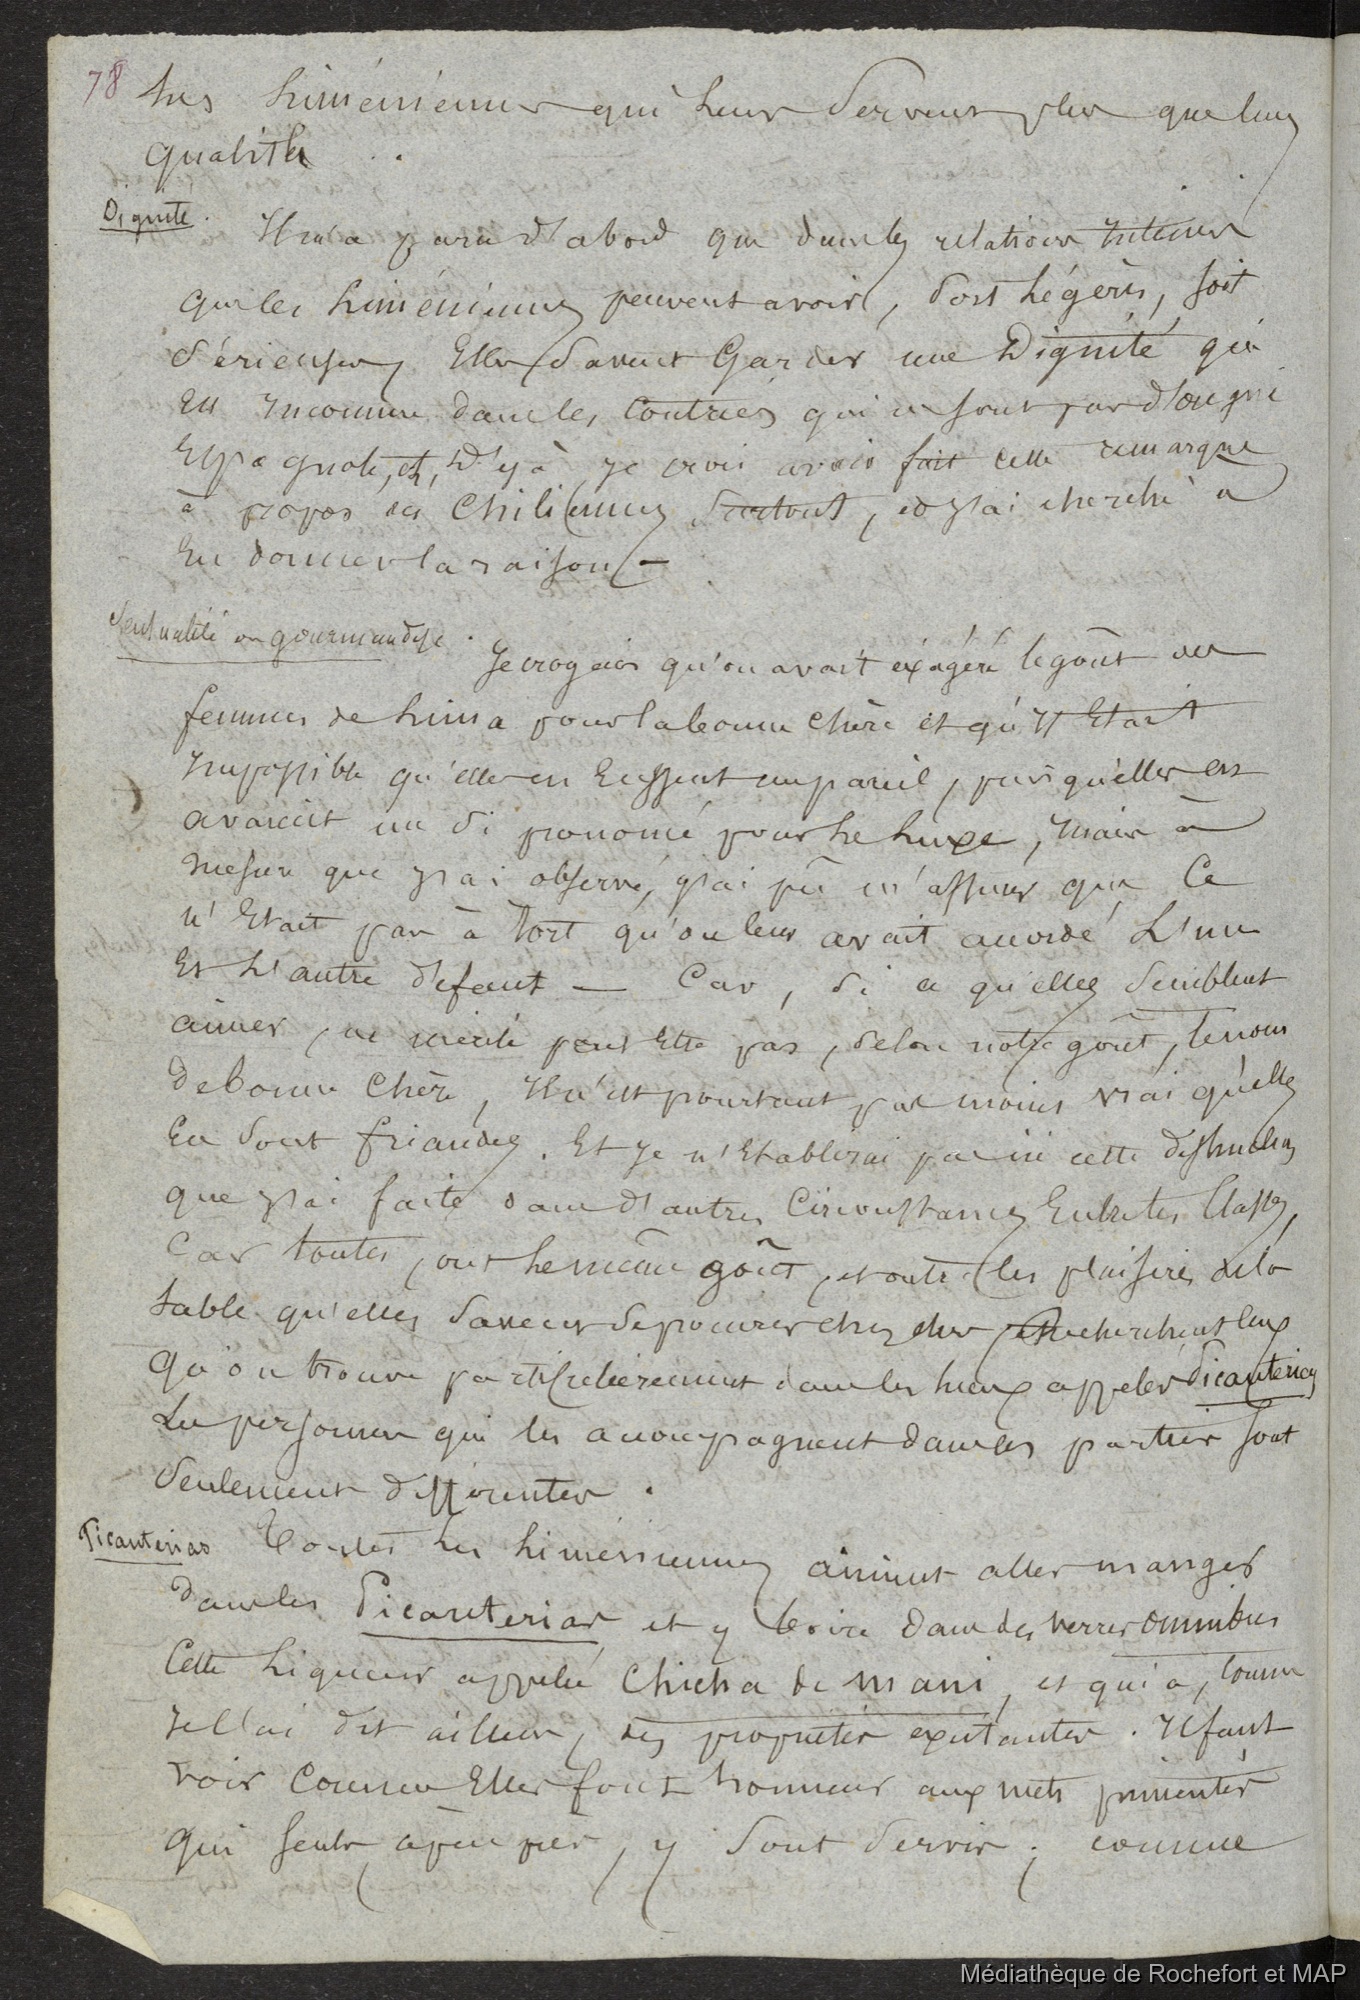 78
Les Liméniennes qui leur servent plus que leurs
qualités . .
Dignité.
Il m'a paru d'abord que dans les relations intimes
que les Liméniennes peuvent avoir, soit légères, soit
sérieuses, Elles savent Garder une Dignité qui
Est inconnue dans les Contrées qui ne sont pas d'origine
Espagnole, et, déjà je crois avoir fait cette remarque
à propos des Chiliennes surtout, et j'ai cherché à
En donner la raison. —
Sensualité ou gourmandise.
Je croyais qu'on avait éxagéré le goût des
femmes de Lima pour la bonne chère et qu'il Etait
Impossible qu'elles en Eussent un pareil, puisqu'elles en
avaient un si prononcé pour le Luxe, mais à
mesure que j'ai observé, j'ai pû m'assurer que Ce
n'Etait pas à tort qu'on leur avait accordé L'un
Et L'autre défaut — Car, si ce qu'elles semblent
aimer, ne mérite peut Etre pas, selon notre goût, le nom
de bonne Chère, Il n'est pourtant pas moins vrai qu'elles
En sont friandes. Et je n'Etablirai pas ici cette distinction
que j'ai faite dans d'autres Circonstances Entre les Classes,
Car toutes, ont le même goût, et outre les plaisirs de la
table qu'elles savent se procurer chez elles, recherchent ceux
qu'on trouve particulièrement dans les lieux appelés Picanterias
Les personnes qui les accompagnent dans ces parties sont
seulement différentes.
Picanterias
Toutes Les Liméniennes aiment aller manger
dans les Picanterias, et y boire dans des verres omnibus
Cette Liqueur appelée Chicha de mani, et qui a, comme
je l'ai dit ailleurs, des propriétés excitantes. Il faut
voir Comme Elles font honneur aux mets pimentés
qui seuls, à peu près, y sont servis; comme
Médiathèque de Rochefort et MAP